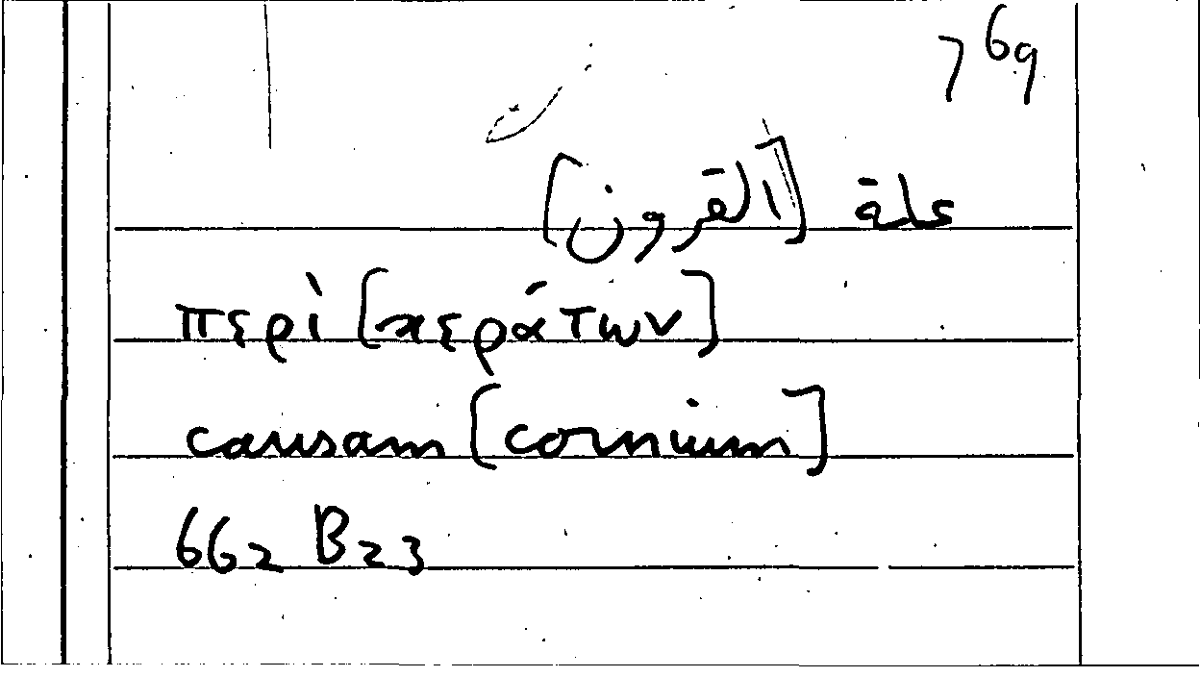 769
علة [القرون]
περὶ [κεράτων]
causam [cornium]
662 B23